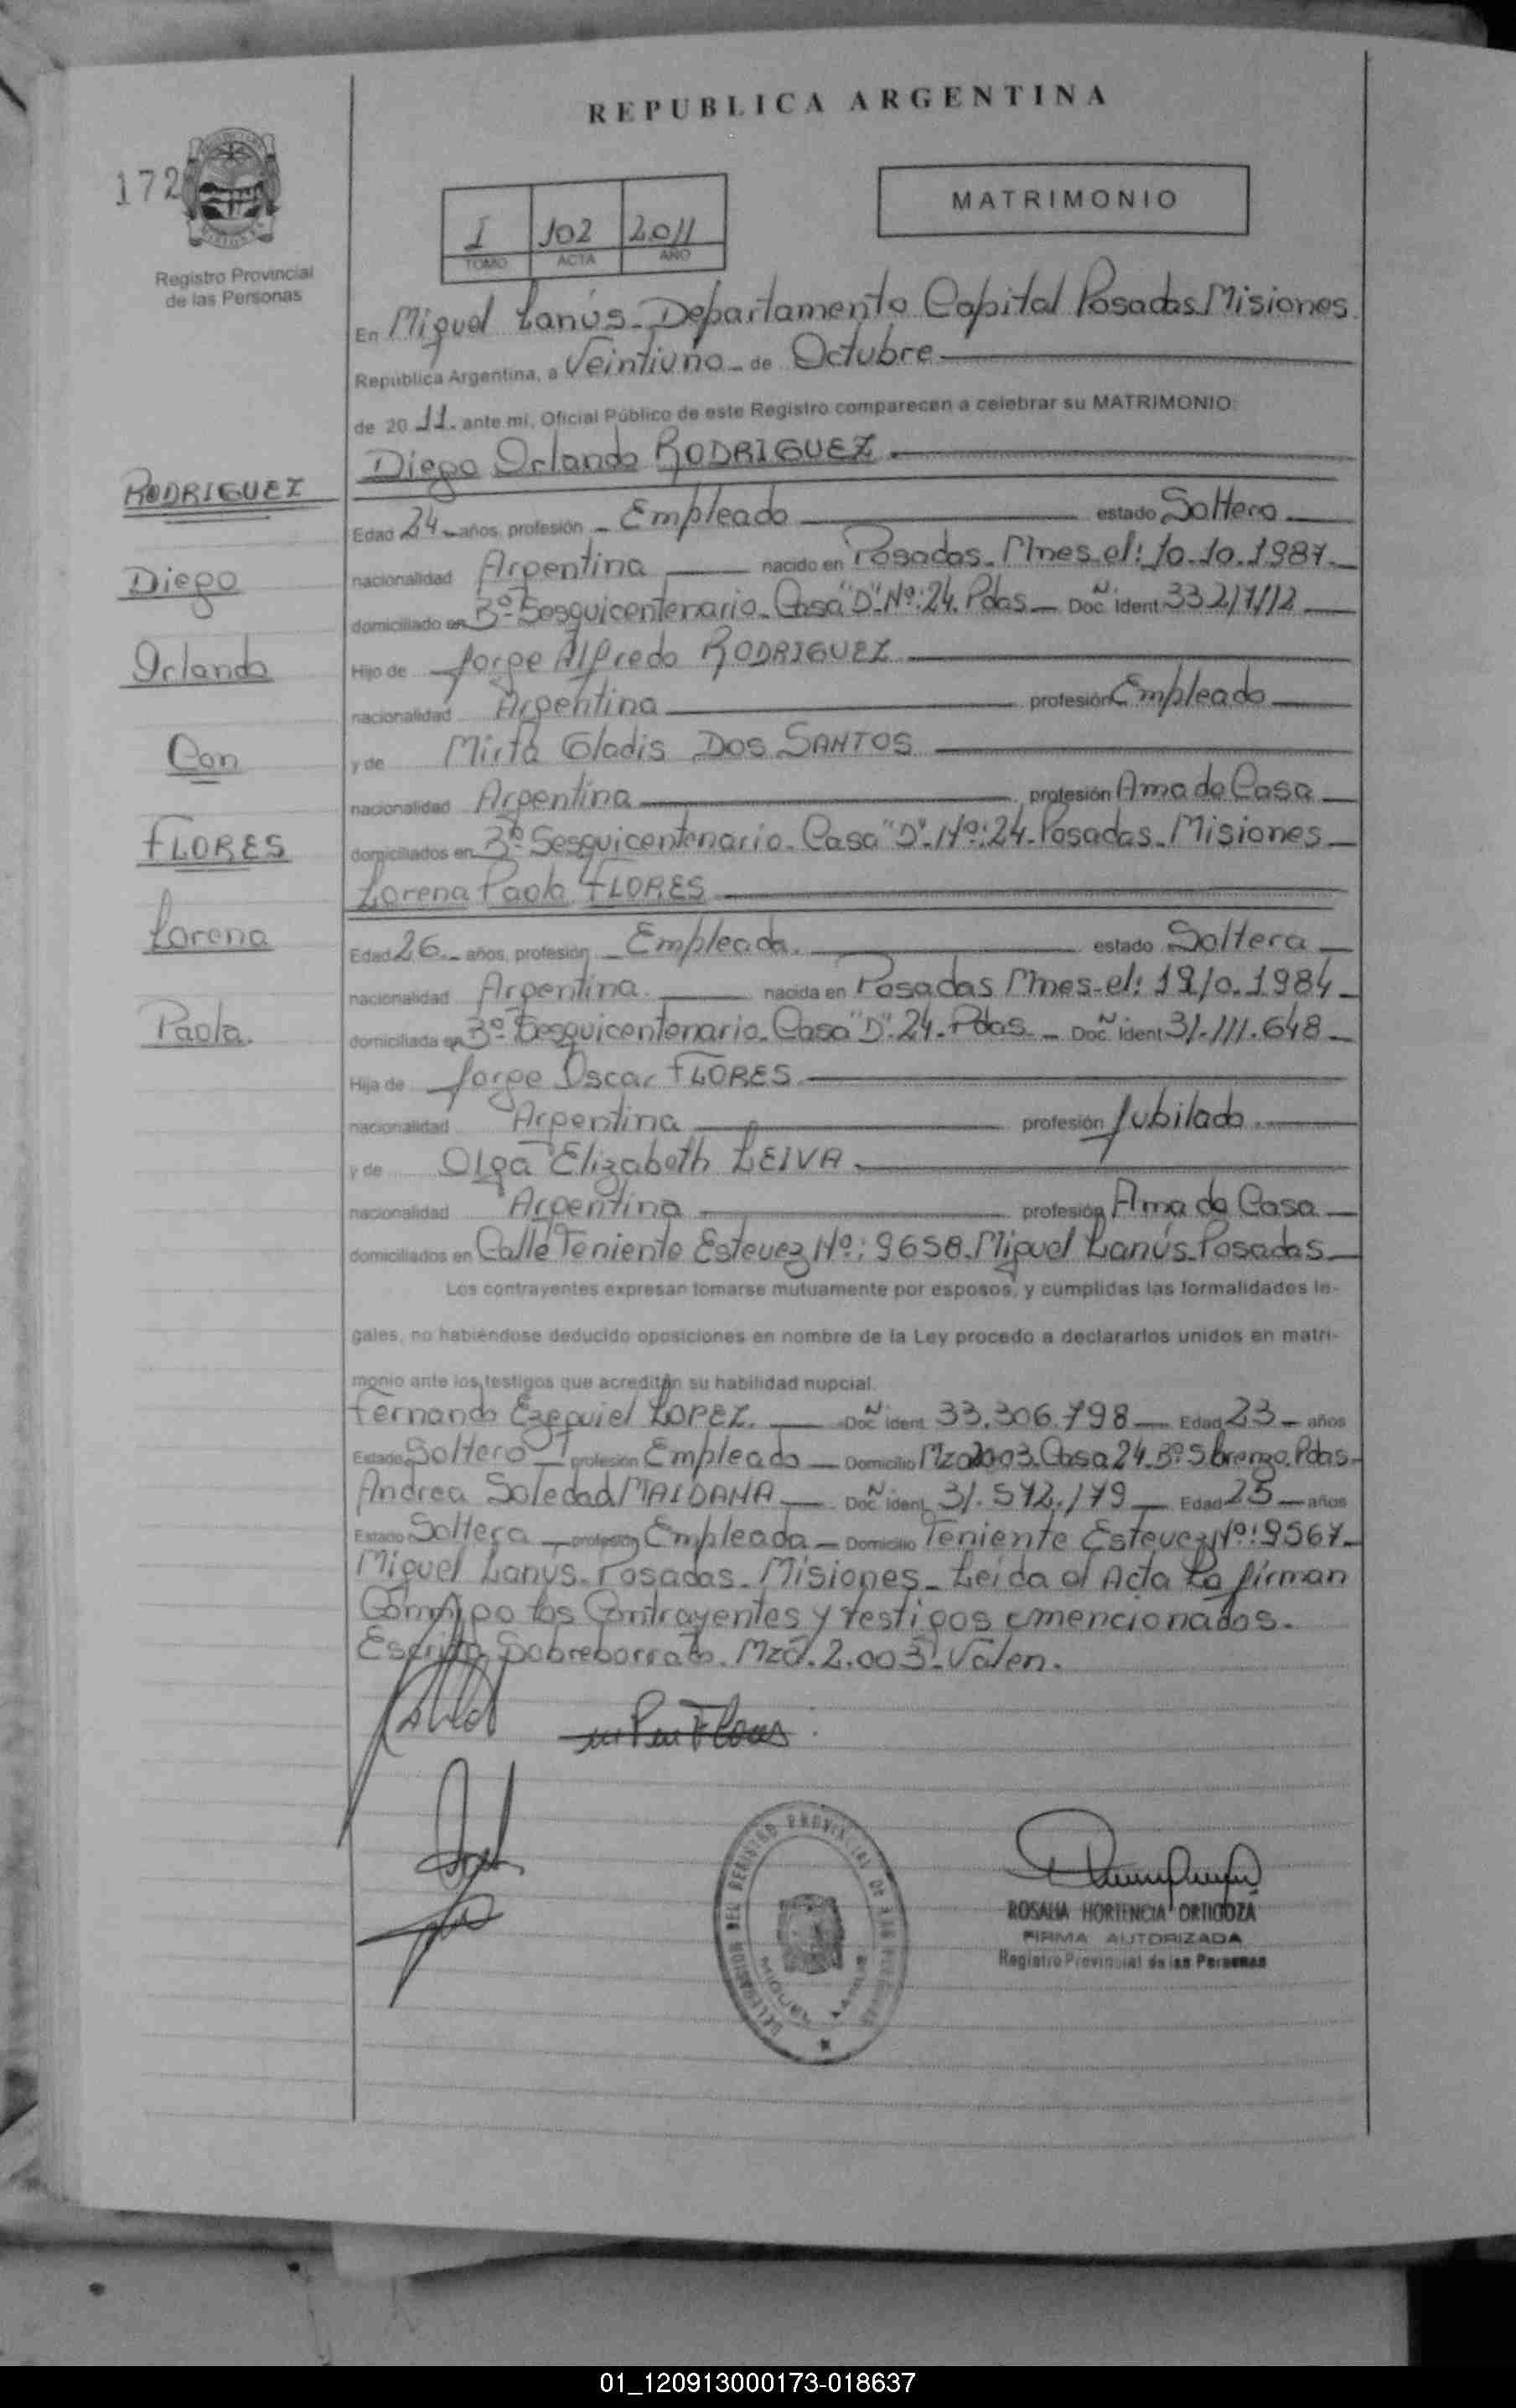 REPUBLICA ARGENTINA
172
MATRIMONIO
I 102 2011
TOMO ACTA AÑO
Registro Provincial
de las Personas
En Miguel Lanús - Departamento Capital Posadas Misiones.
República Argentina, a Veintiuno - de Octubre
de 20 11. ante mi, Oficial Público de este Registro comparecen a celebrar su MATRIMONIO:
Diego Orlando RODRIGUEZ
RODRIGUEZ
Edad 24 años, profesión Empleado estado Soltero
Diego
nacionalidad Argentina nacido en Posadas - Mnes. el: 10.10.1987.
domiciliado en Bº Sesquicentenario - Casa "D" Nº: 24. Pdas - Doc. Ident.
Orlando
Hijo de Jorge Alfredo RODRIGUEZ
nacionalidad Argentina profesión Empleado
Con
y de Mirta Gladis DOS SANTOS
nacionalidad Argentina profesión Ama de Casa
FLORES
domiciliados en Bº Sesquicentenario - Casa "D". Nº: 24 - Posadas - Misiones
Lorena Paola FLORES
Lorena
Edad 26 - años, profesión Empleada. estado Soltera
nacionalidad Argentina. nacida en Posadas Mnes - el: 19.10.1984
Paola.
domiciliada en Bº Sesquicentenario - Casa "D". 24 - Pdas - Doc. Ident 31.111.648
Hija de Jorge Oscar FLORES
nacionalidad Argentina profesión Jubilado
y de Olga Elizabeth LEIVA
nacionalidad Argentina profesión Ama de Casa
domiciliados en Calle Teniente Estevez Nº: 9658. Miguel Lanús - Posadas
Los contrayentes expresan tomarse mutuamente por esposos, y cumplidas las formalidades le-
gales, no habiéndose deducido oposiciones en nombre de la Ley procedo a declararlos unidos en matri-
monio ante los testigos que acreditan su habilidad nupcial.
Fernando Ezequiel LOPEZ. Doc. Ident. 33.306.798 Edad 23 - años
Estado Soltero profesión Empleado Domicilio Mza 2003. Casa 24. Bº S. Lorenzo. Pdas.
Andrea Soledad MAIDANA Doc. Ident. 31.572.179 Edad 25 - años
Estado Soltera profesión Empleada Domicilio Teniente Estevez Nº: 9567.
Miguel Lanús - Posadas - Misiones - Leida el Acta La firman
Conmigo los Contrayentes y testigos mencionados.
Escrito Sobreborrado. Mza. 2.003 - Valen.
Flores
DELEGACION DEL REGISTRO PROVINCIAL DE LAS PERSONAS
MIGUEL LANUS
ROSALIA HORTENCIA ORTIGOZA
FIRMA AUTORIZADA
Registro Provincial de las Personas
01_120913000173-018637